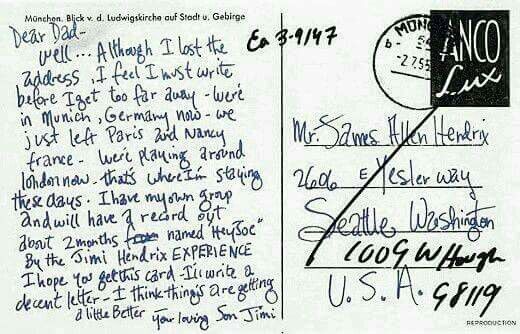 München, Blick v. d. Ludwigskirche auf Stadt u. Gebirge
Dear Dad-
Well... Although I lost the
address, I feel I must write
before I get too far away - We're
in Munich, Germany now - we
just left Paris and Nancy
france - We're playing around
london now. that's where I'm staying
these days. I have my own group
and will have a record out
about 2 months named "Hey Joe"
By the Jimi Hendrix EXPERIENCE
I hope you get this card - I'll write a
decent letter - I think things are getting
a little Better
Your loving Son Jimi
3-9/47
MÜNC
ANCO
Lux
Mr. James Allen Hendrix
2606 E Yesler way
Seattle Washington
1009 W Hough
U.S.A. 98119
REPRODUCTION